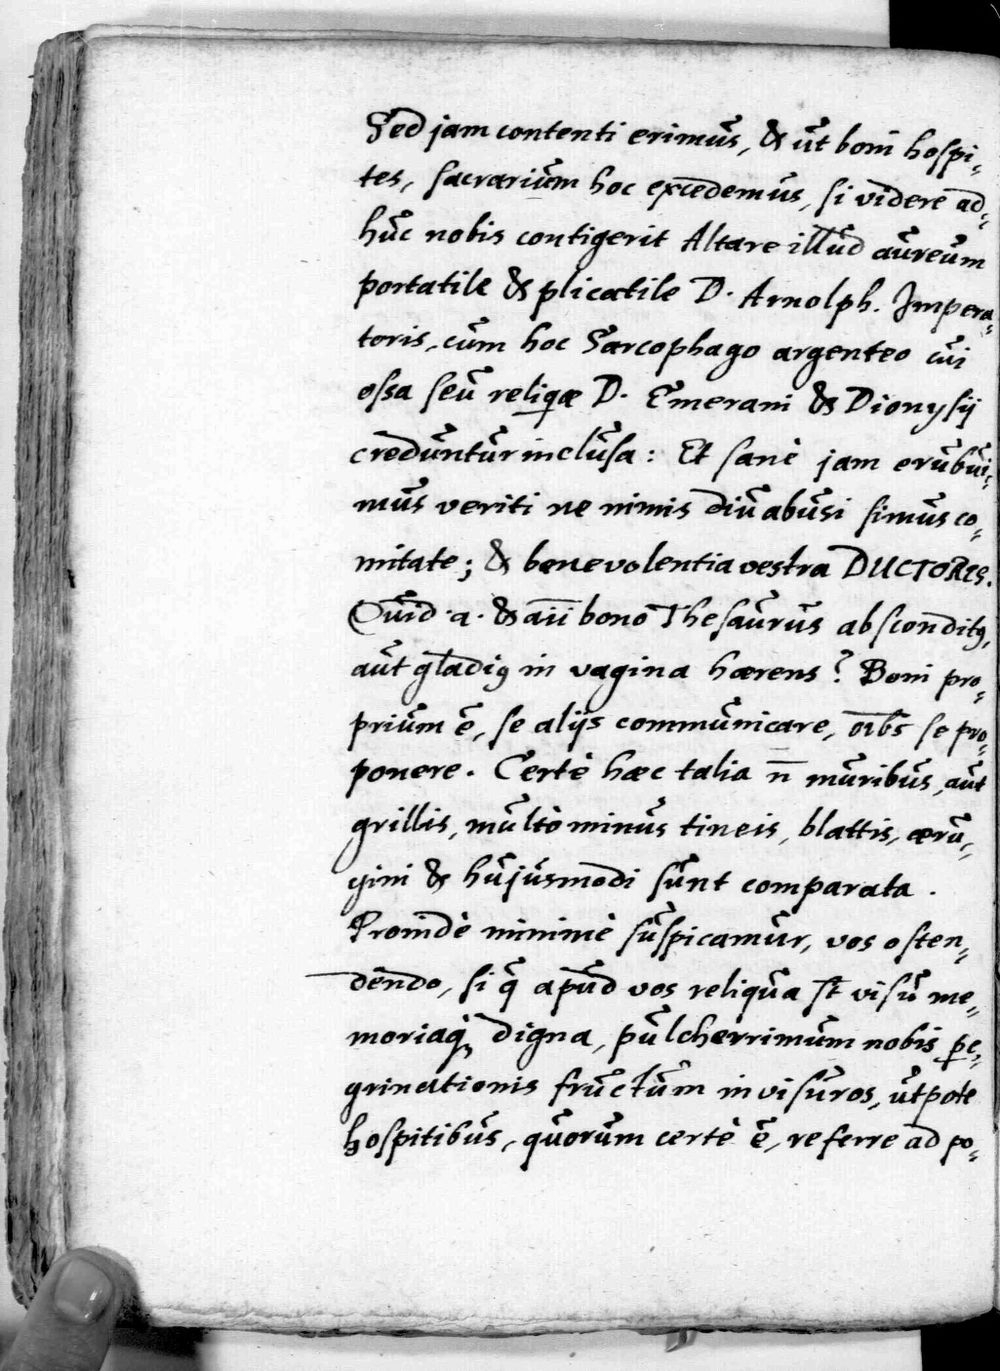 Sed jam contenti erimus, & ut boni hospi-
tes, sacrarium hoc excedemus, si videre ad-
huc nobis contigerit Altare illud aureum
portatile & plicatile D. Arnolph. Impera-
toris, cum hoc Sarcophago argenteo cui
ossa seu reliqæ D. Emerani & Dionysij
creduntur inclusa: Et sanè jam erubui-
mus veriti ne nimis diu abusi simus co-
mitate; & benevolentia vestra DUCTORES.
Quid .a. & aīi bono Thesaurus absconditꝰ,
aut gladiꝰ in vagina hærens? Boni pro-
prium ē, se alijs communicare, oībs se pro-
ponere. Certè hæc talia n̄ muribus, aut
grillis, multò minus tineis, blattis, æru-
gini & hujusmodi sunt comparata.
Proindè minimè suspicamur, vos osten-
dendo, si q̄ apud vos reliqua st̄ visu me-
moriaq̀ digna, pulcherrimum nobis pe-
grinationis fructum invisuros, utpote
hospitibus, quorum certè ē, referre ad po-